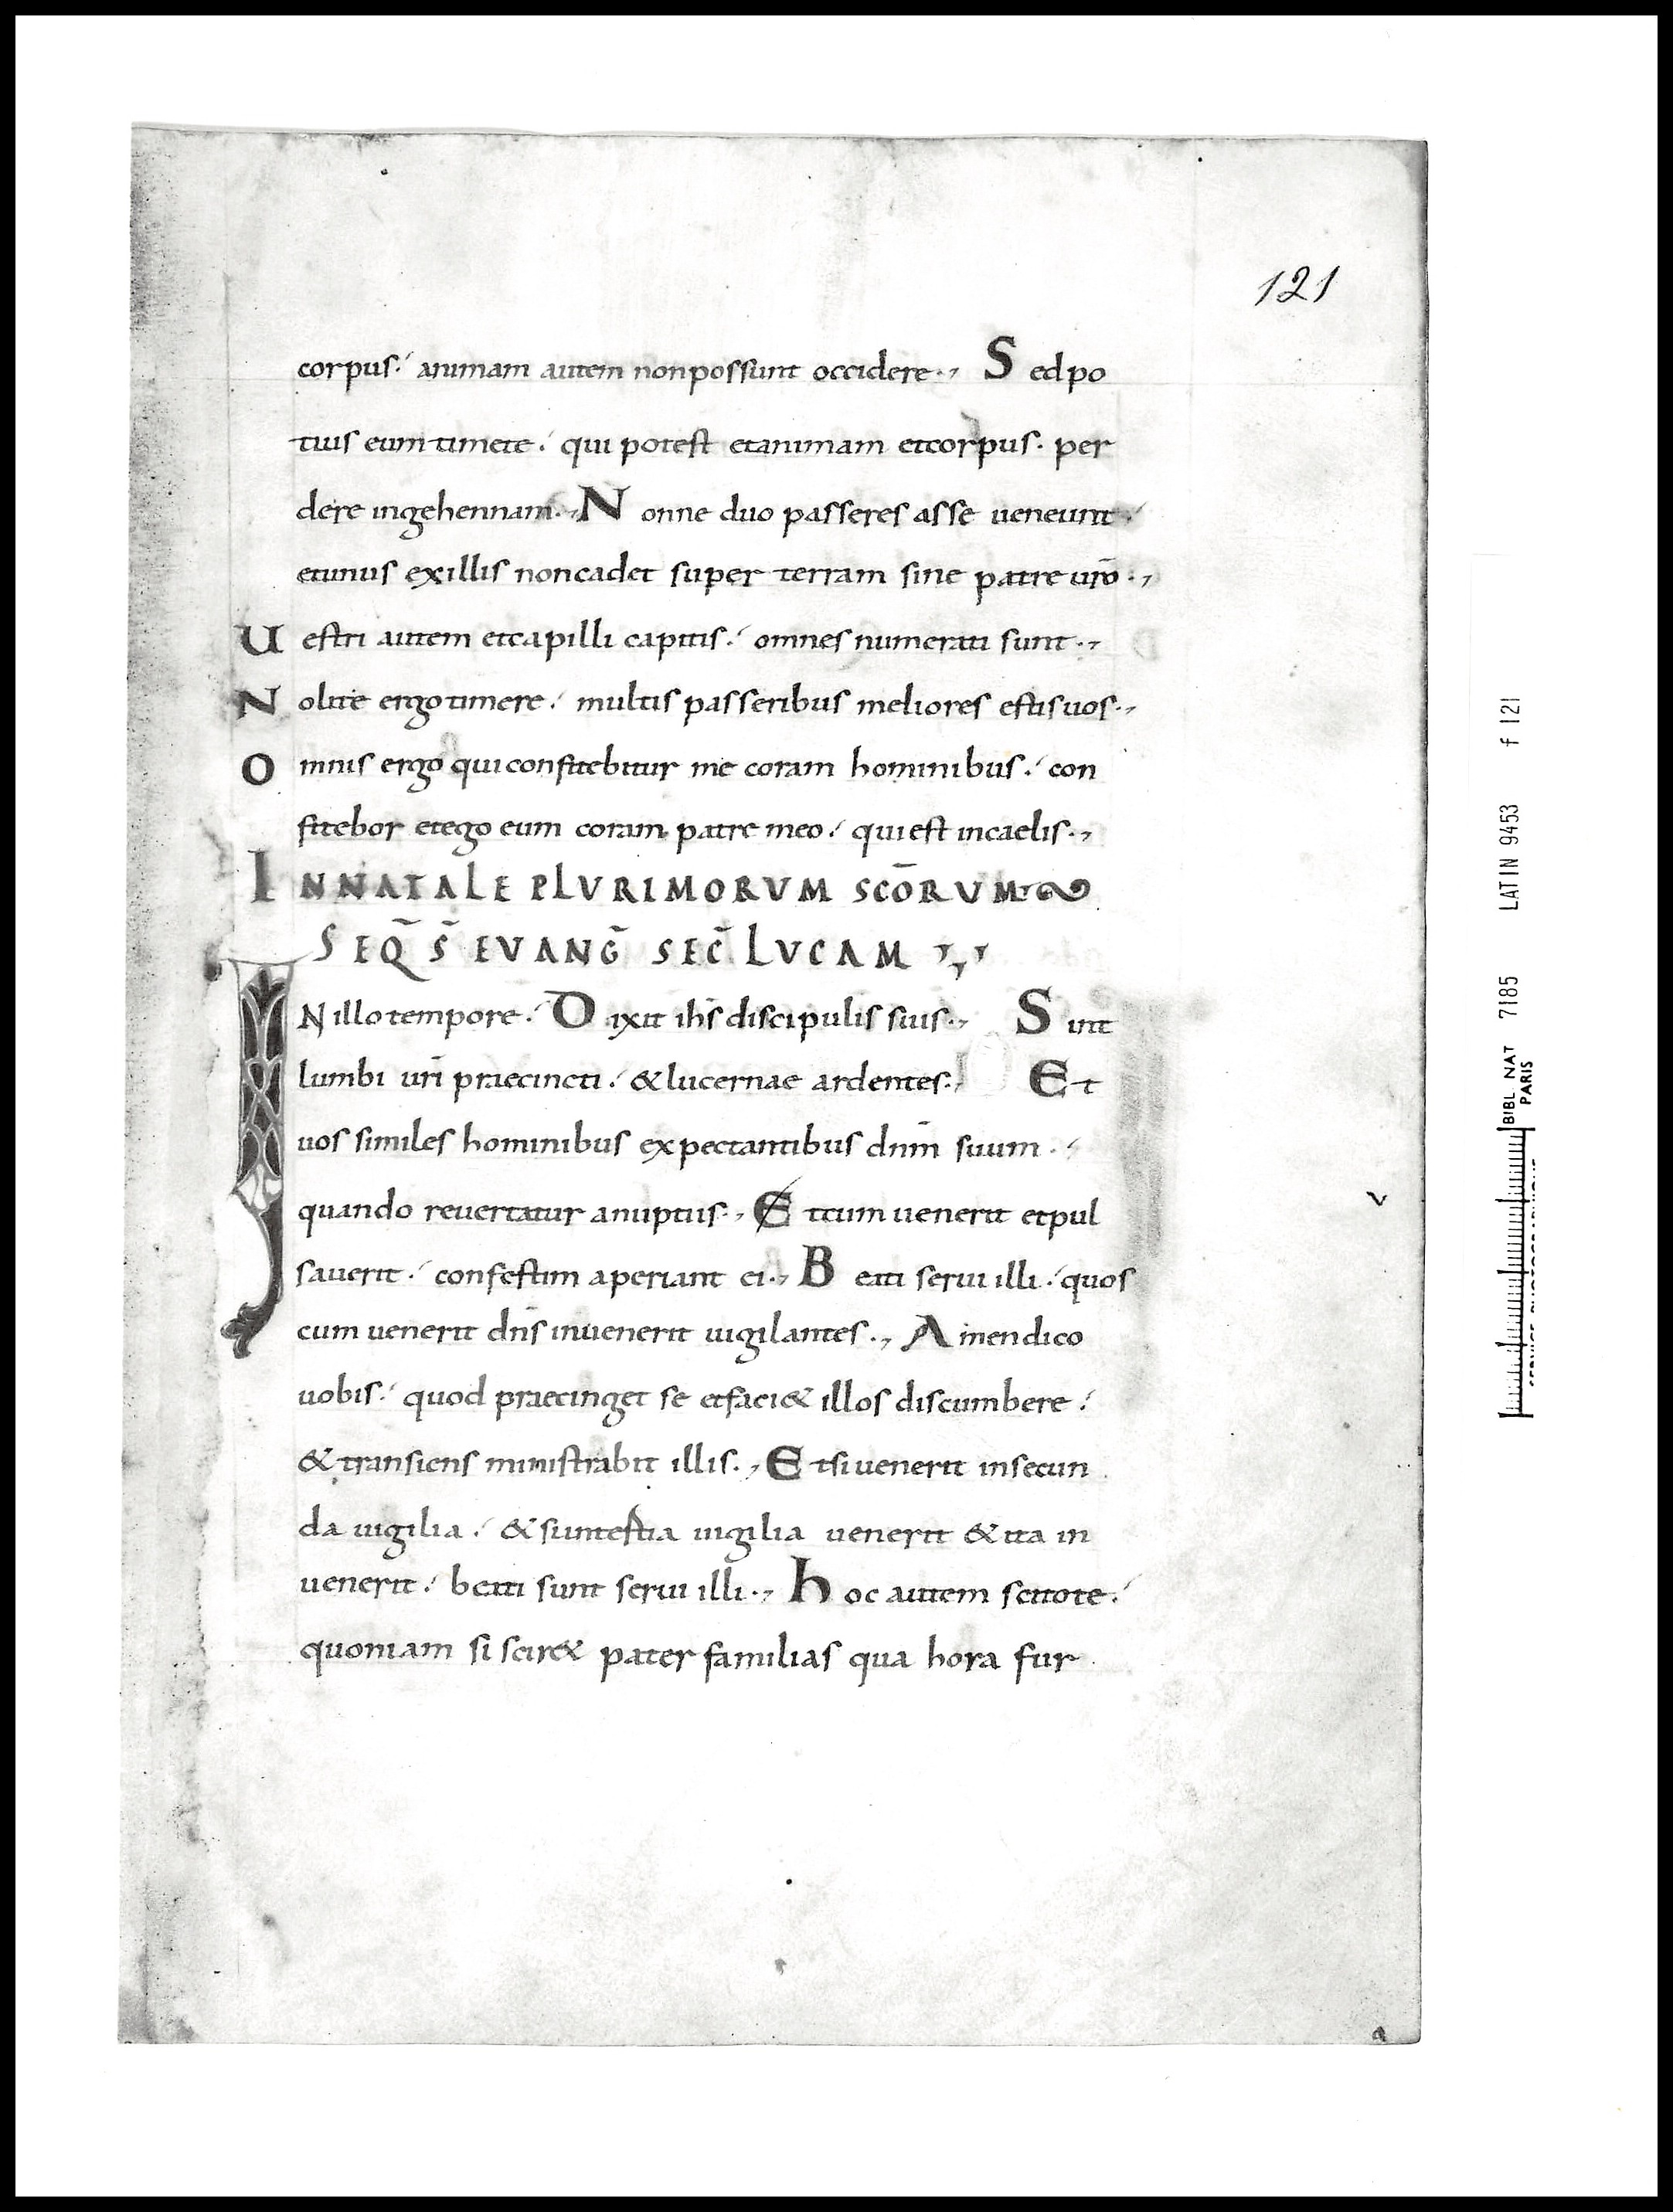 121
corpus. animam autem non possunt occidere. Sed po
tius eum timete. qui potest et animam et corpus. per
dere in gehennam. Nonne duo passeres asse ueneunt.
et unus ex illis non cadet super terram sine patre uro.
Uestri autem et capilli capitis. omnes numerati sunt.
Nolite ergo timere. multis passeribus meliores estis uos.
Omnis ergo qui confitebitur me coram hominibus. con
fitebor et ego eum coram patre meo. qui est in caelis.
IN NATALE PLURIMORUM SCŌRUM
SEQ̄ S̄ EVANḠ SEC̄ LVCAM
IN illo tempore. Dixit ihs̄ discipulis suis. Sint
lumbi ur̄i praecincti. & lucernae ardentes. Et
uos similes hominibus expectantibus dnm̄ suum.
quando reuertatur a nuptiis. Et cum uenerit et pul
sauerit. confestim aperiant ei. Beati serui illi. quos
cum uenerit dn̄s inuenerit uigilantes. Amen dico
uobis. quod praecinget se et faci& illos discumbere.
& transiens ministrabit illis. Et si uenerit in secun
da uigilia. & si in testia uigilia uenerit & ita in
uenerit. beati sunt serui illi. Hoc autem scitote.
quoniam si scir& pater familias qua hora fur
BIBL NAT PARIS 7185 LATIN 9453 f 121